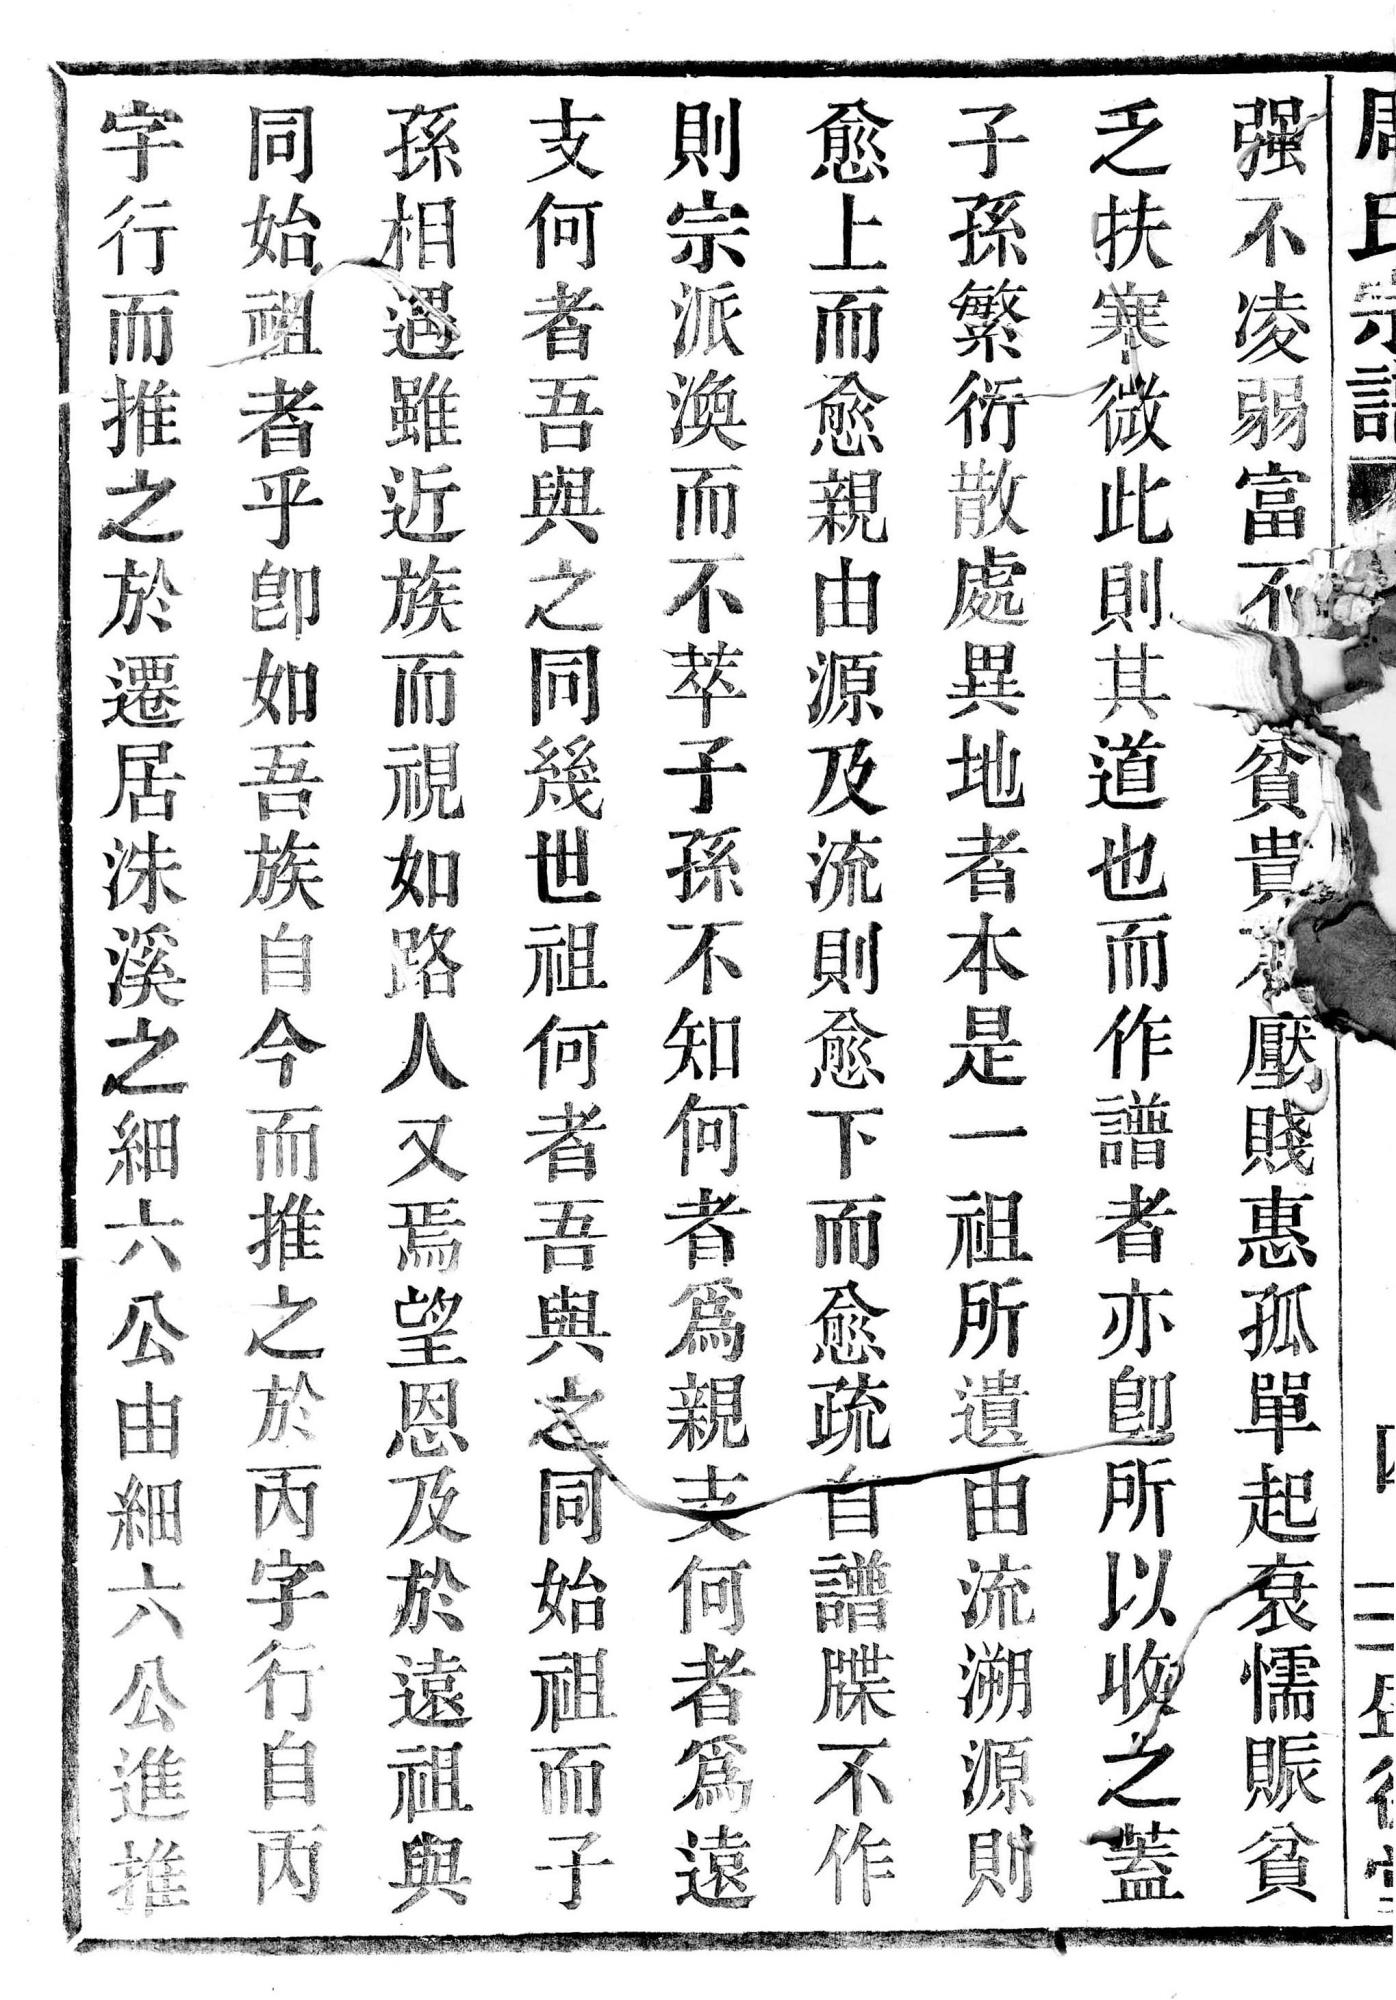 周氏宗譜
强不凌弱富不貧貴不壓賤惠孤單起衰懦賑貧
乏扶寒微此則其道也而作譜者亦卽所以收之蓋
子孫繁衍散處異地者本是一祖所遺由流溯源則
愈上而愈親由源及流則愈下而愈疏自譜牒不作
則宗派渙而不萃子孫不知何者爲親支何者爲遠
支何者吾與之同幾世祖何者吾與之同始祖而子
孫相遇雖近族而視如路人又焉望恩及於遠祖與
同始祖者乎卽如吾族自今而推之於丙字行自丙
字行而推之於遷居洙溪之細六公由細六公進推